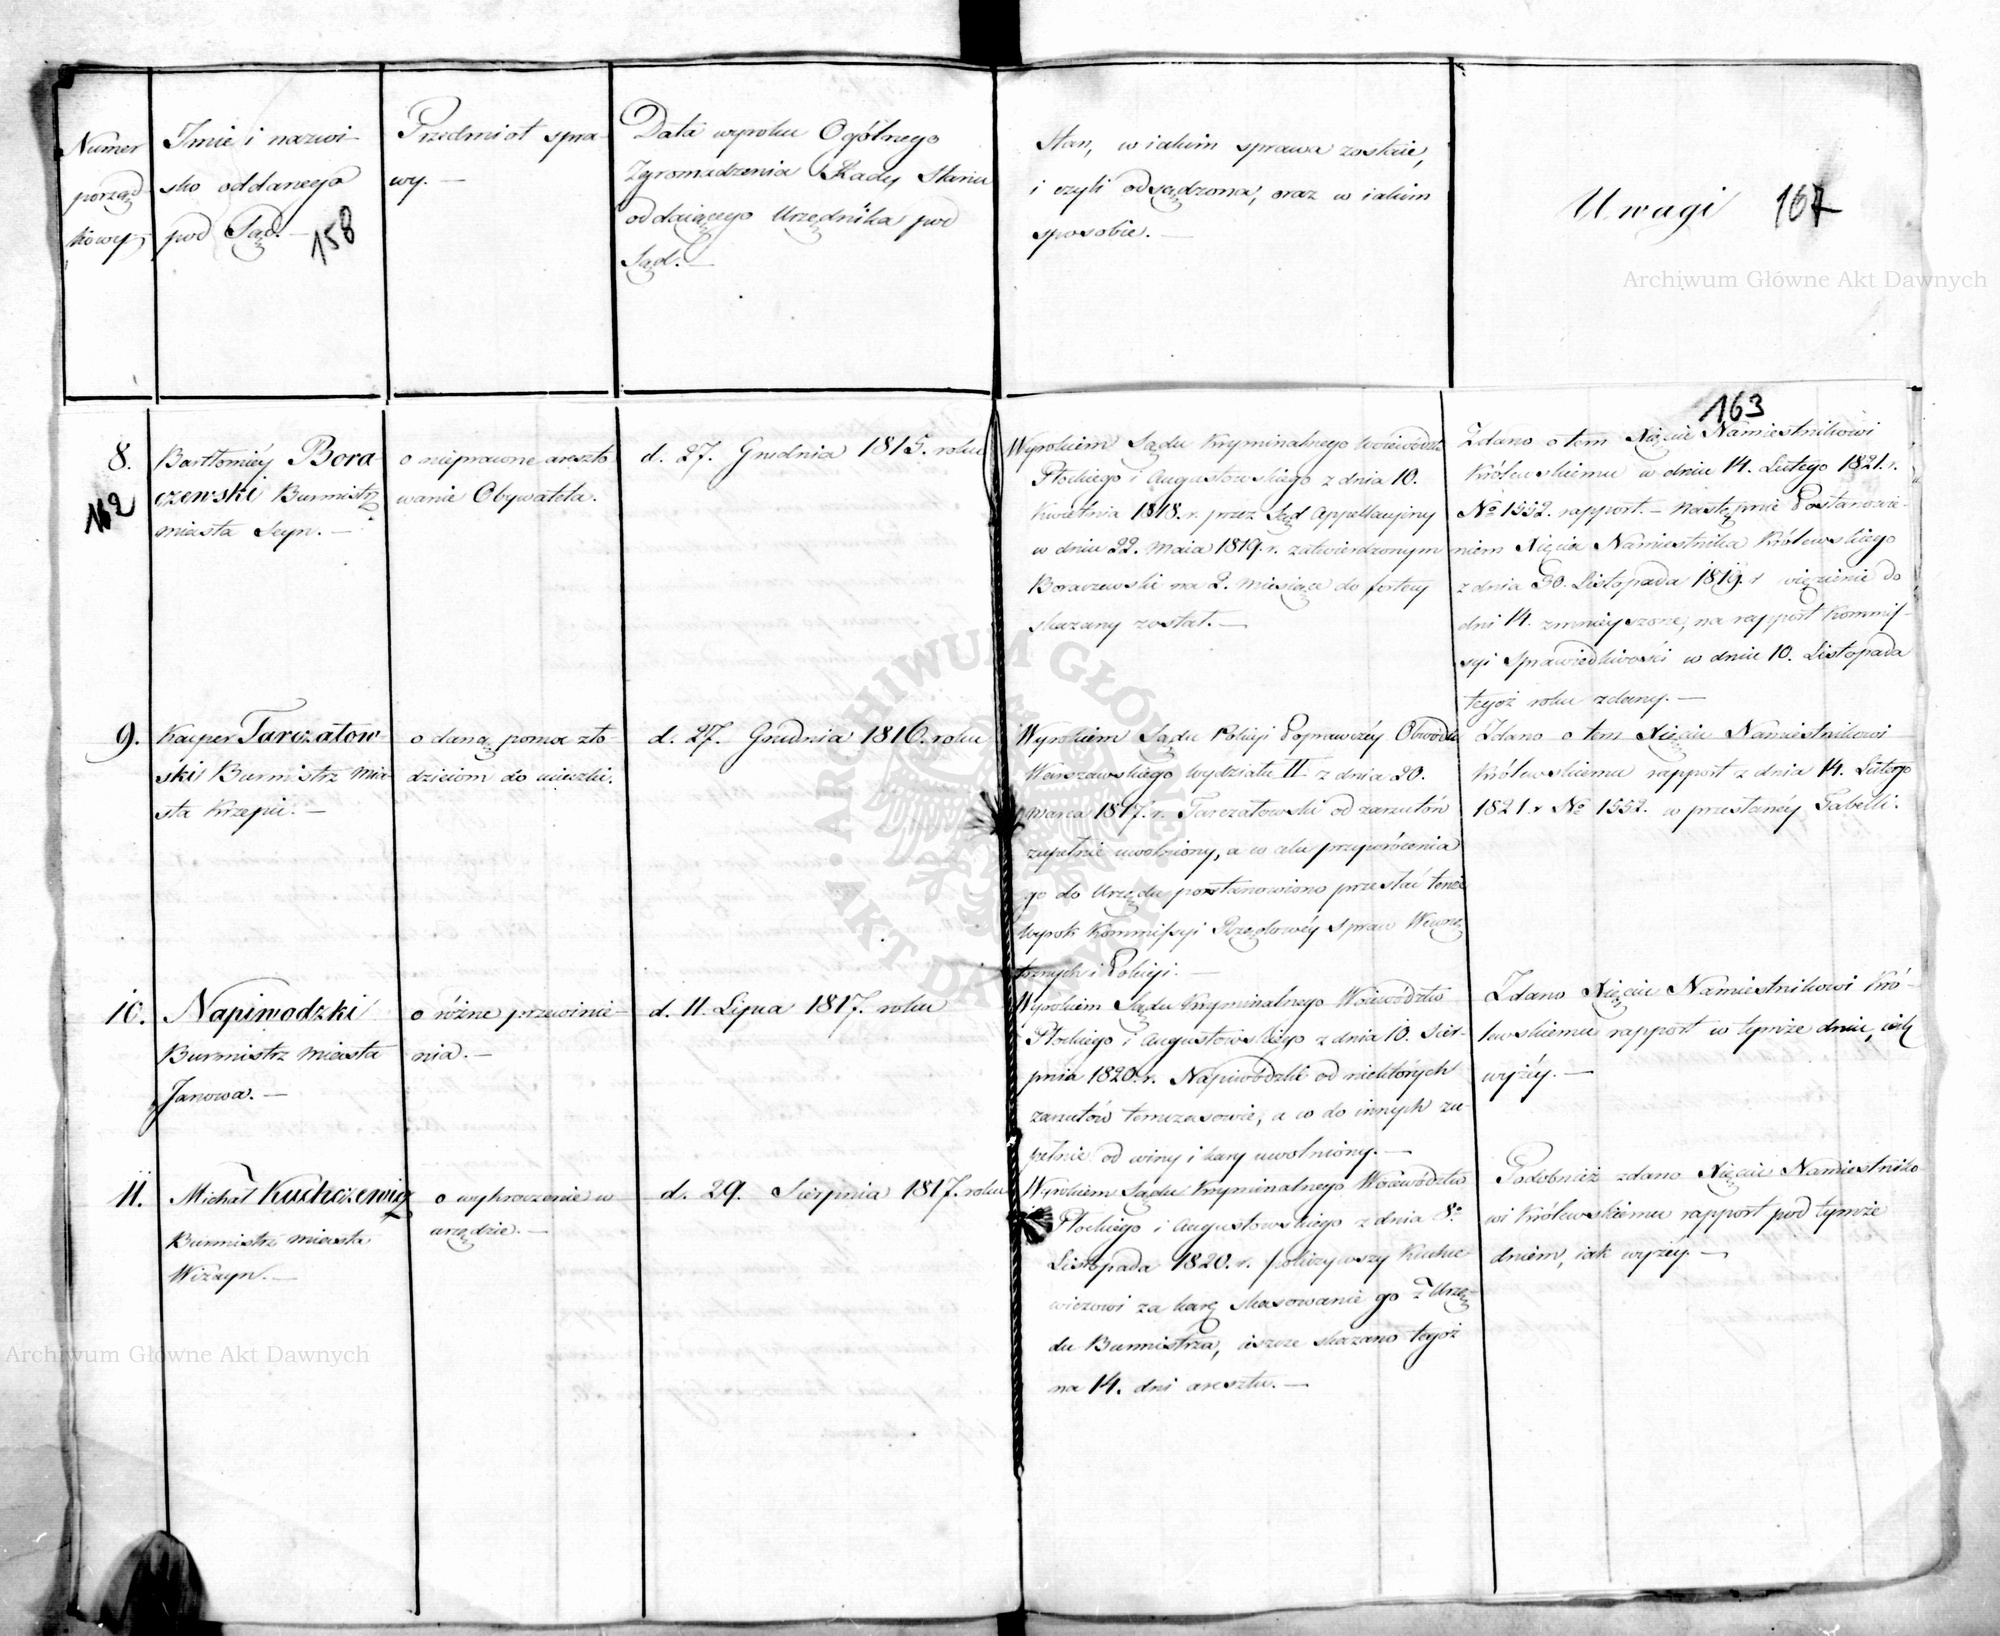 Numer
porząd-
kowy
Imie i nazwi-
sko oddanego
pod Sąd. —
158
Przedmiot spra-
wy. —
Data wyroku Ogólnego
Zgromadzenia Rady Stanu
oddaiącego Urzędnika pod
Sąd. —
Stan, w iakim sprawa zostaie,
i czyli odsądzona, oraz w iakim
sposobie. —
Uwagi
167
Archiwum Główne Akt Dawnych
8.
162
Bartłomiéy Bora-
czewski Burmistrz
miasta Seyn. —
o nieprawne areszto
wanie Obywatela.
d. 27. Grudnia 1815. roku
Wyrokiem Sądu Kryminalnego Wóiewództ:
Płockiego i Augustowskiego z dnia 10.
Kwietnia 1818. r. przez Sąd Appellacyiny
w dniu 22. Maia 1819. r. zatwierdzonym
Boraczewski na 2. miesiące do fortecy
skazany został. —
163
Zdano o tem Xięciu Namiestnikowi
Królewskiemu w dniu 14. Lutego 1821. r.
No 1552. rapport. — Następnie Postanowie-
niem Xięcia Namiestnika Królewskiego
z dnia 30. Listopada 1819. r. więzienie do
dni 14. zmnieyszone, na rapport Kommis-
syi Sprawiedliwości w dniu 10. Listopada
tegoż roku zdany. —
9.
Kacper Tarczatow-
ski Burmistrz mia-
sta Krzepic. —
o daną pomoc zło
dzieiom do ucieczki.
d. 27. Grudnia 1816. roku
Wyrokiem Sądu Policyi Poprawczéy Obwodu
Warszawskiego Wydziału II. z dnia 20.
marca 1817. r. Tarczatowski od zarzutów
zupełnie uwolniony, a w celu przywrócenia
go do Urzędu postanowiono przesłać tenże
wyrok Kommissyi Rządowéy Spraw Wewnę-
trznych i Policyi. —
Zdano o tem Xięciu Namiestnikowi
Królewskiemu rapport z dnia 14. Lutego
1821. r No 1552. w przesłanéy Tabelli.
10.
Napiwodzki
Burmistrz Miasta
Janowa. —
o różne przewinie-
nia. —
d. 11. Lipca 1817. roku
Wyrokiem Sądu Kryminalnego Woiewództwa
Płockiego i Augustowskiego z dnia 10. Sier-
pnia 1820. r. Napiwódzki od niektórych
zarzutów temczasowie, a co do innych zu-
pełnie od winy i kary uwolniony. —
Zdano Xięciu Namiestnikowi Kró-
lewskiemu rapport w tymże dniu, iak
wyżéy. —
11.
Michał Kuchczewicz
Burmistrz miasta
Wiżayn. —
o wykroczenie w
urzędzie. —
d. 29. Sierpnia 1817. roku
Wyrokiem Sądu Kryminalnego Woiewództwa
Płockiego i Augustowskiego z dnia 8o
Listopada 1820. r. policzywszy Kuche
wiczowi za karę skasowanie go z Urzę-
du Burmistrza, ieszcze skazano tegoż
na 14. dni aresztu. —
Podobnież zdano Xięciu Namiestniko
wi Królewskiemu rapport pod tymże
dniem, iak wyżéy. —
ARCHIWUM GŁÓWNE AKT DAWNYCH
Archiwum Główne Akt Dawnych